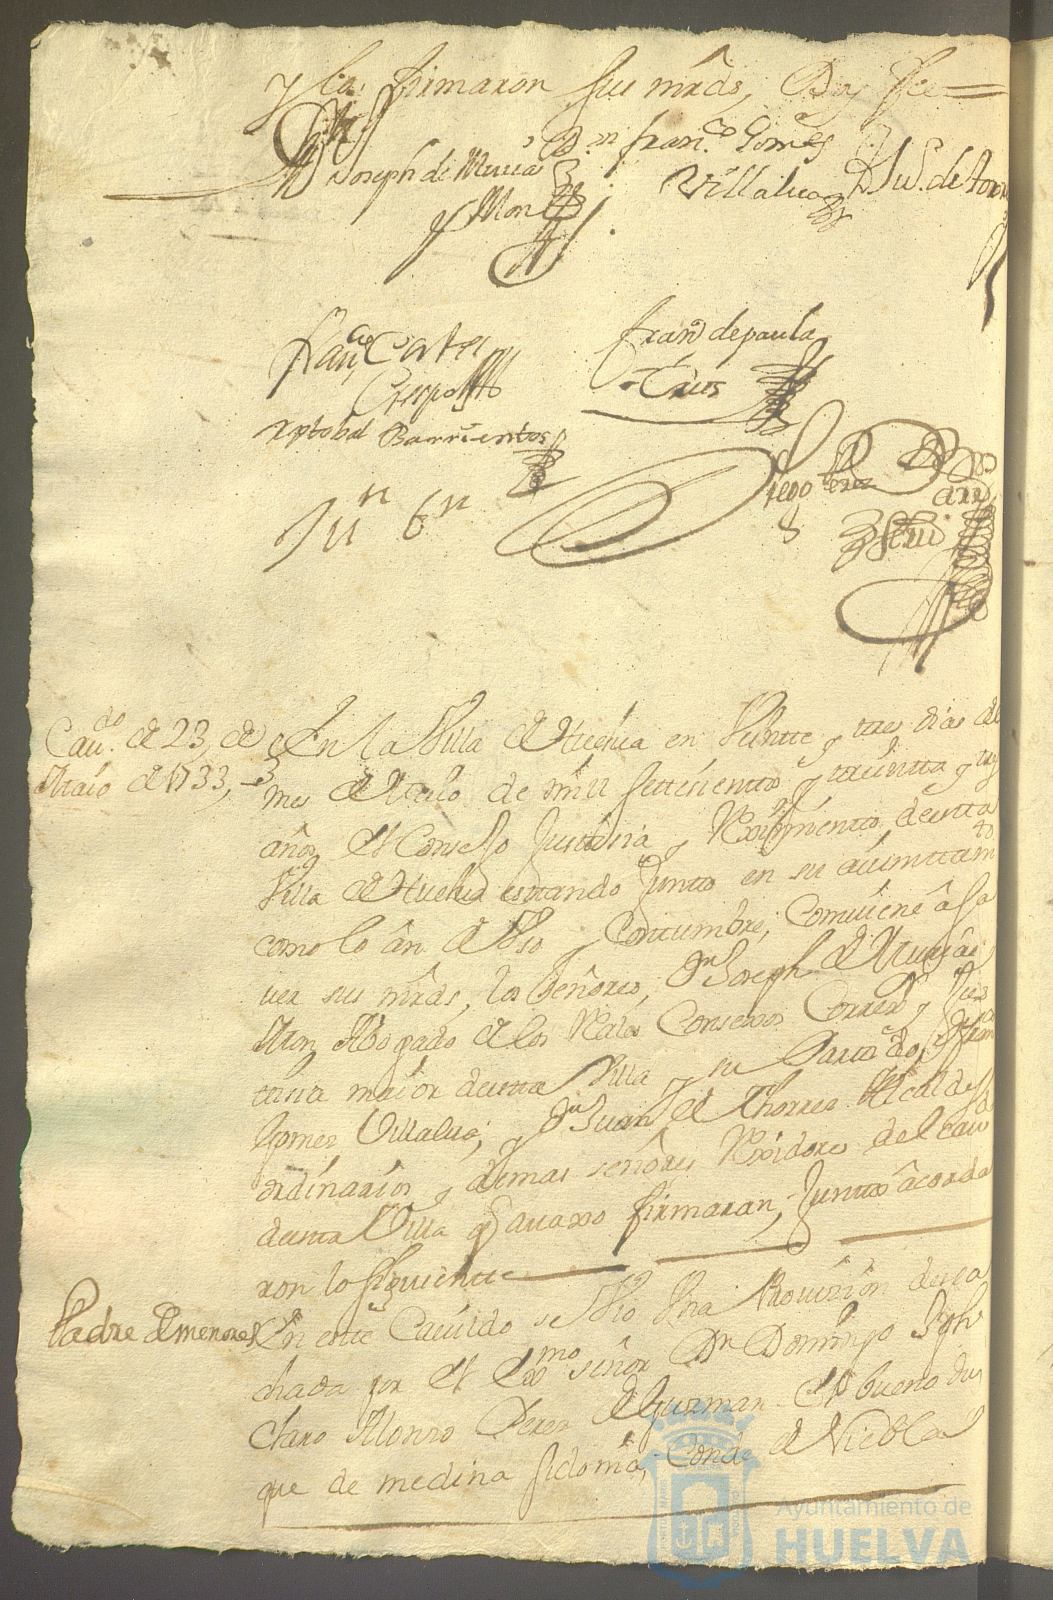 y la firmaron sus mrds, Doy fee =
Dn Joseph de Murcia
y Monz
Dn franco Gomes
Villalua
Ju. de torr
franco Cortes
Crespo
frano de paula
Trius
xptobal Barrientos
Jun
Diego Perez
essno
Cauo. de 23 de
Maio de 1733,
En la Villa de Huelua en Veintte y tres dias del
mes de Maio de mill settecientos y treintta y tres
años el Consejo Justicia y Reximiento de estta
Villa de Huelua estando Juntto en su aiuntamto
como lo an de Vso y Costumbre, Combiene a sa
ver sus mrds, los señores, Dn Joseph de Murcia
Monz Abogado de los Rales Consexos Correxr y Jus
ticia maior de estta Villa y su Partido, Dn Franco
Gomez Villalua, y Dn Juan de Thorres Alcaldes
ordinarios y demas señores Rexidores del Cauo
de esta Villa q Auaxo firmaran, Junttos acorda
ron lo siguiente
Padre de menores
En este Cauildo se Vio Vna Prouision despa
chada por el Exmo señor Dn Domingo Jph
Claro Alonso Perez de Guzman el bueno du
que de medina sidonia, Conde de Niebla
Ayuntamiento de
HUELVA